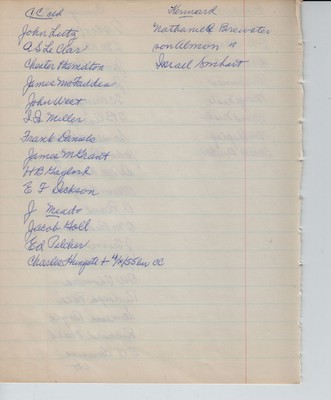 CC cth
John Lutz
A S Le Clar
Chester Hamilton
James McFadden
John West
I I Miller
Frank Daniels
James McGrant
H B Gaylork
E F Dickson
J Meado
Jacob Gall
Ed Pilcher
Charles + 4/4/55 in CC
Kennark
Nathaniel Brewster
son Almon "
Israel Smhart